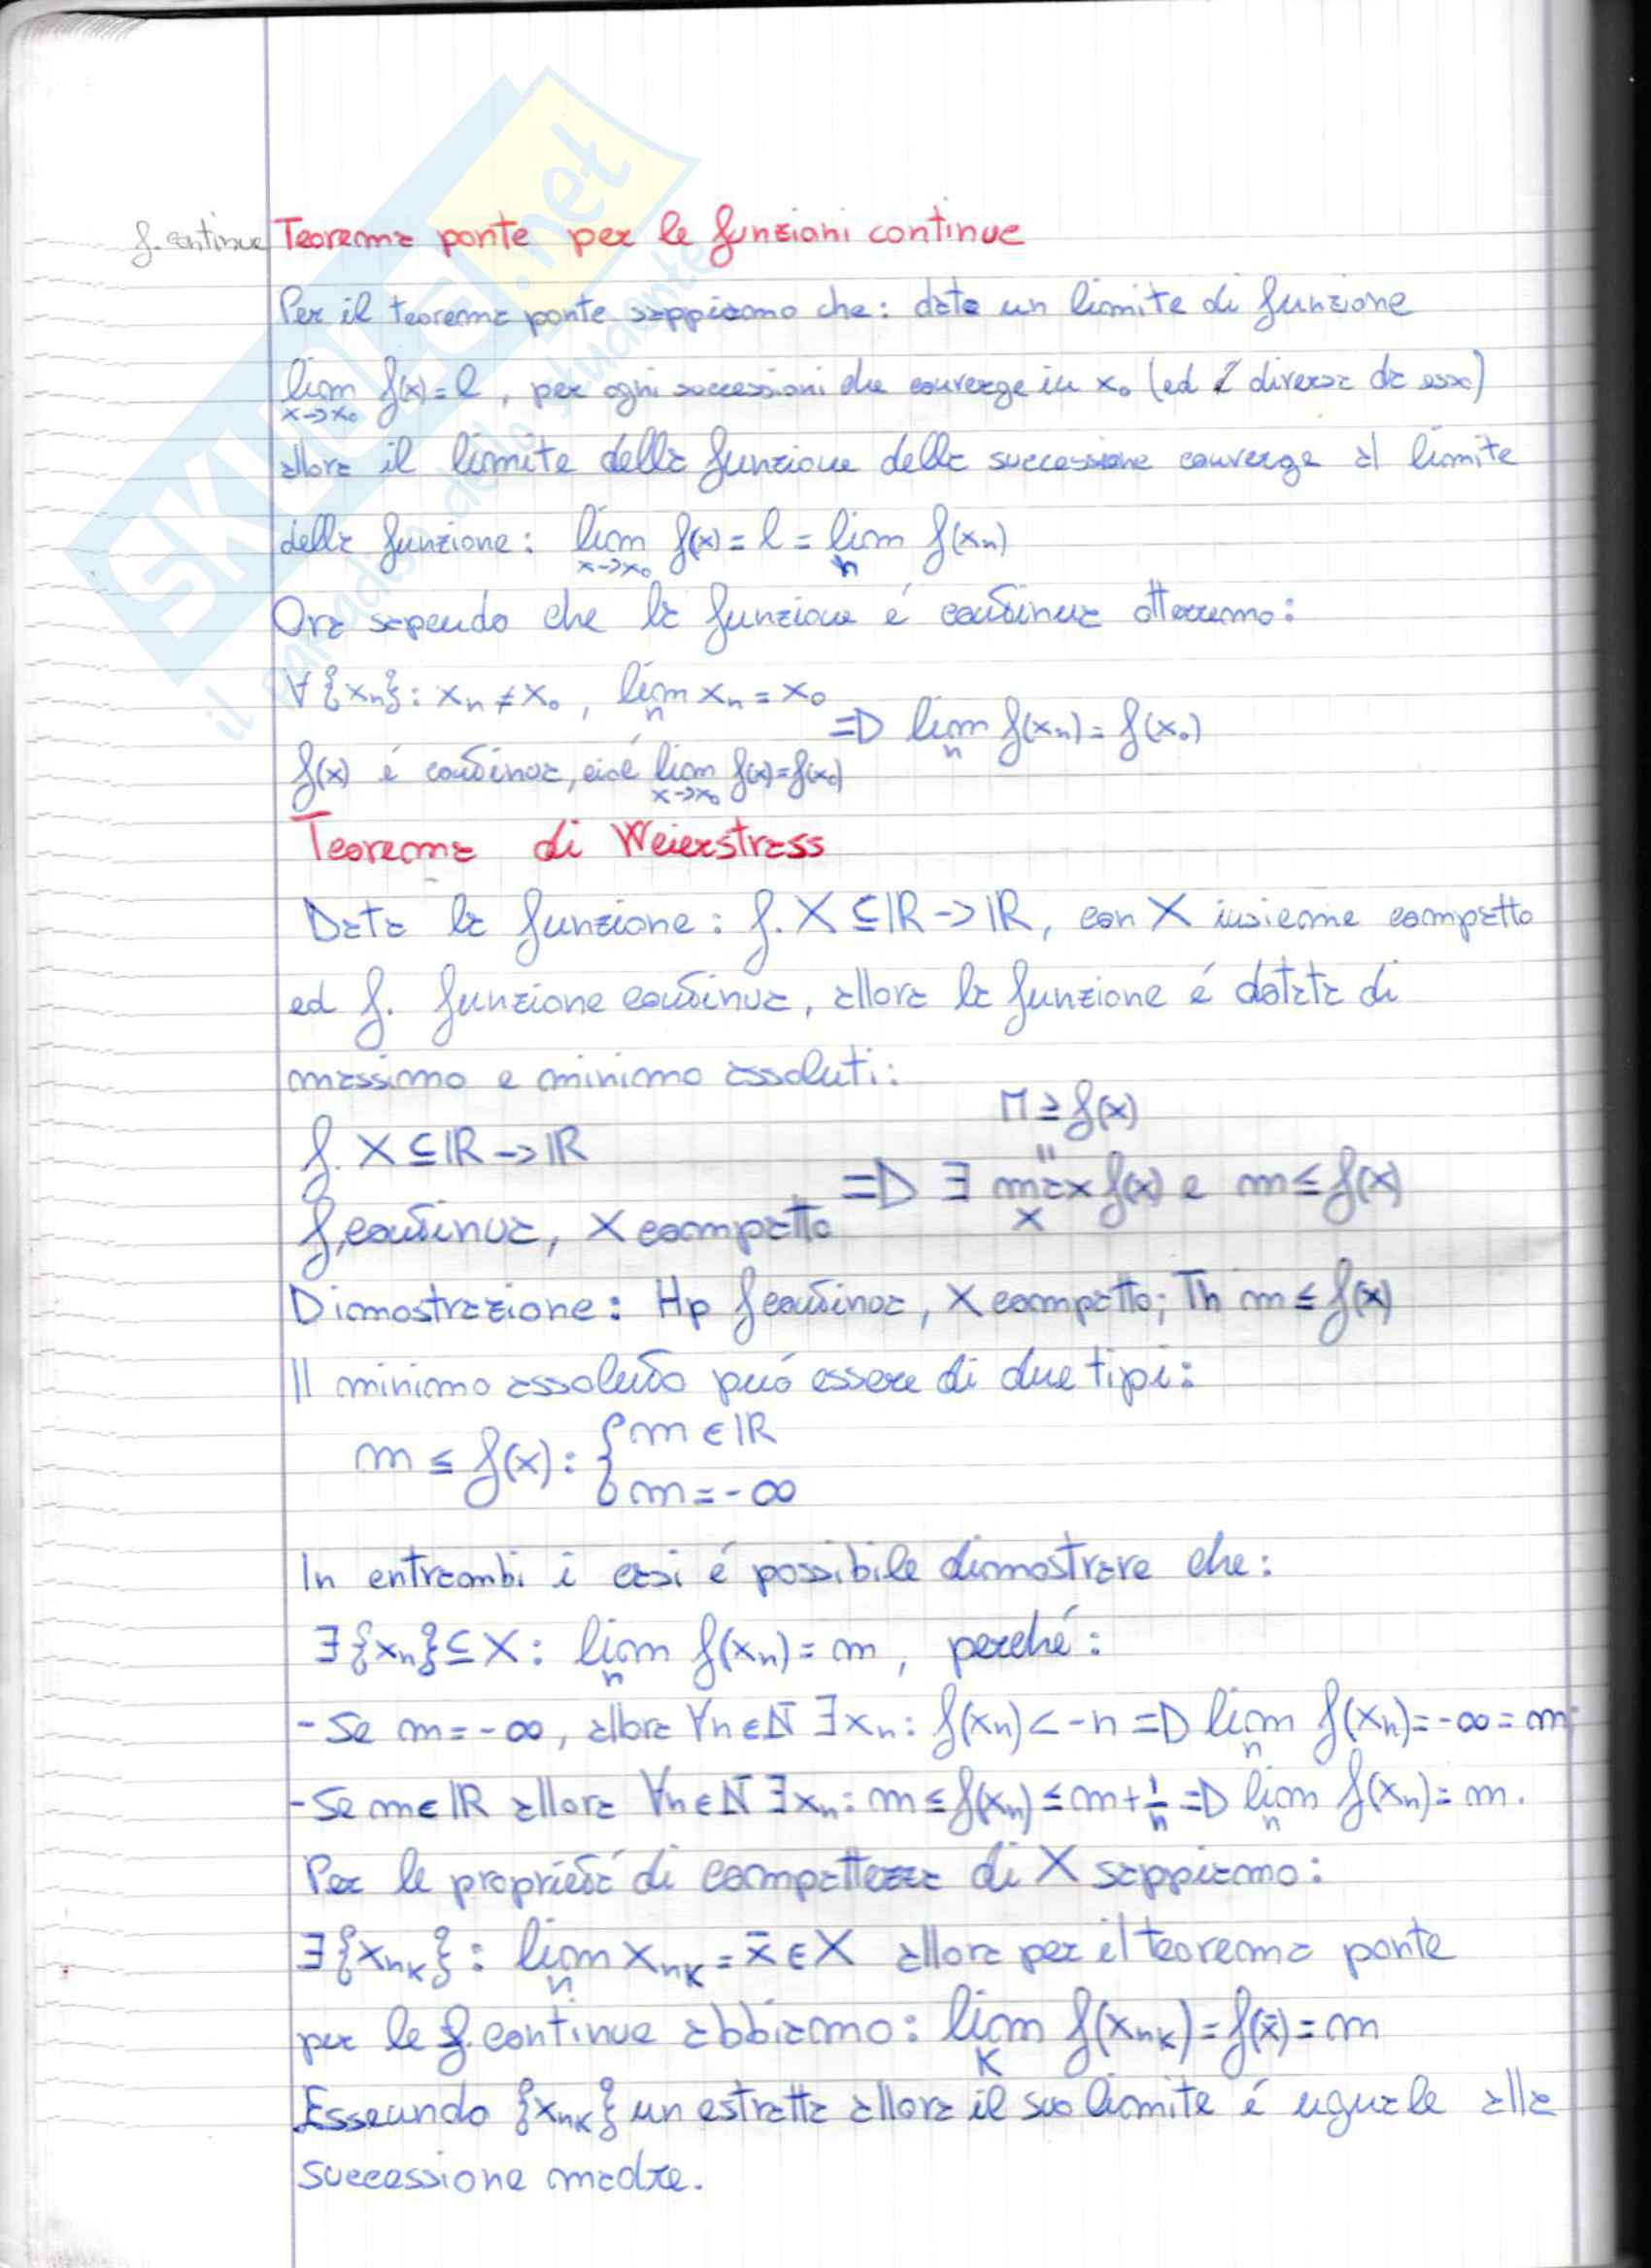 f. continue Teorema ponte per le funzioni continue
Per il teorema ponte sappiamo che: dato un limite di funzione
lim f(x) = l, per ogni successioni che converge in x₀ (ed è diversa da esso)
x->x₀
allora il limite della funzione della successione converge al limite
della funzione: lim f(x) = l = lim f(xₙ)
x->x₀ n
Ora sapendo che la funzione é continua otterremo:
∀{xₙ}: xₙ ≠ x₀, lim xₙ = x₀
n
=D lim f(xₙ) = f(x₀)
n
f(x) é continua, cioé lim f(x) = f(x₀)
x->x₀
Teorema di Weierstrass
Data la funzione: f. X ⊆ ℝ -> ℝ, con X insieme compatto
ed f. funzione continua, allora la funzione é dotata di
massimo e minimo assoluti:
M ≥ f(x)
"
f. X ⊆ ℝ -> ℝ
=D ∃ max f(x) e m ≤ f(x)
x
f, continua, X compatto
Dimostrazione: Hp f continua, X compatto; Th m ≤ f(x)
Il minimo assoluto puó essere di due tipi:
m ≤ f(x): { m ∈ ℝ
m = -∞
In entrambi i casi é possibile dimostrare che:
∃{xₙ} ⊆ X: lim f(xₙ) = m, perché:
n
- Se m = -∞, allora ∀n ∈ N ∃xₙ: f(xₙ) < -n =D lim f(xₙ) = -∞ = m
n
- Se m ∈ ℝ allora ∀n ∈ N ∃xₙ: m ≤ f(xₙ) ≤ m + 1/n =D lim f(xₙ) = m.
n
Per le proprietá di compattezza di X sappiamo:
∃{x_nK}: lim x_nK = x̄ ∈ X allora per il teorema ponte
n
per le f. continue abbiamo: lim f(x_nK) = f(x̄) = m
K
Esseundo {x_nK} un estratta allora il suo limite é uguale alla
successione madre.
SKUOLA.net
il paradiso dello studente